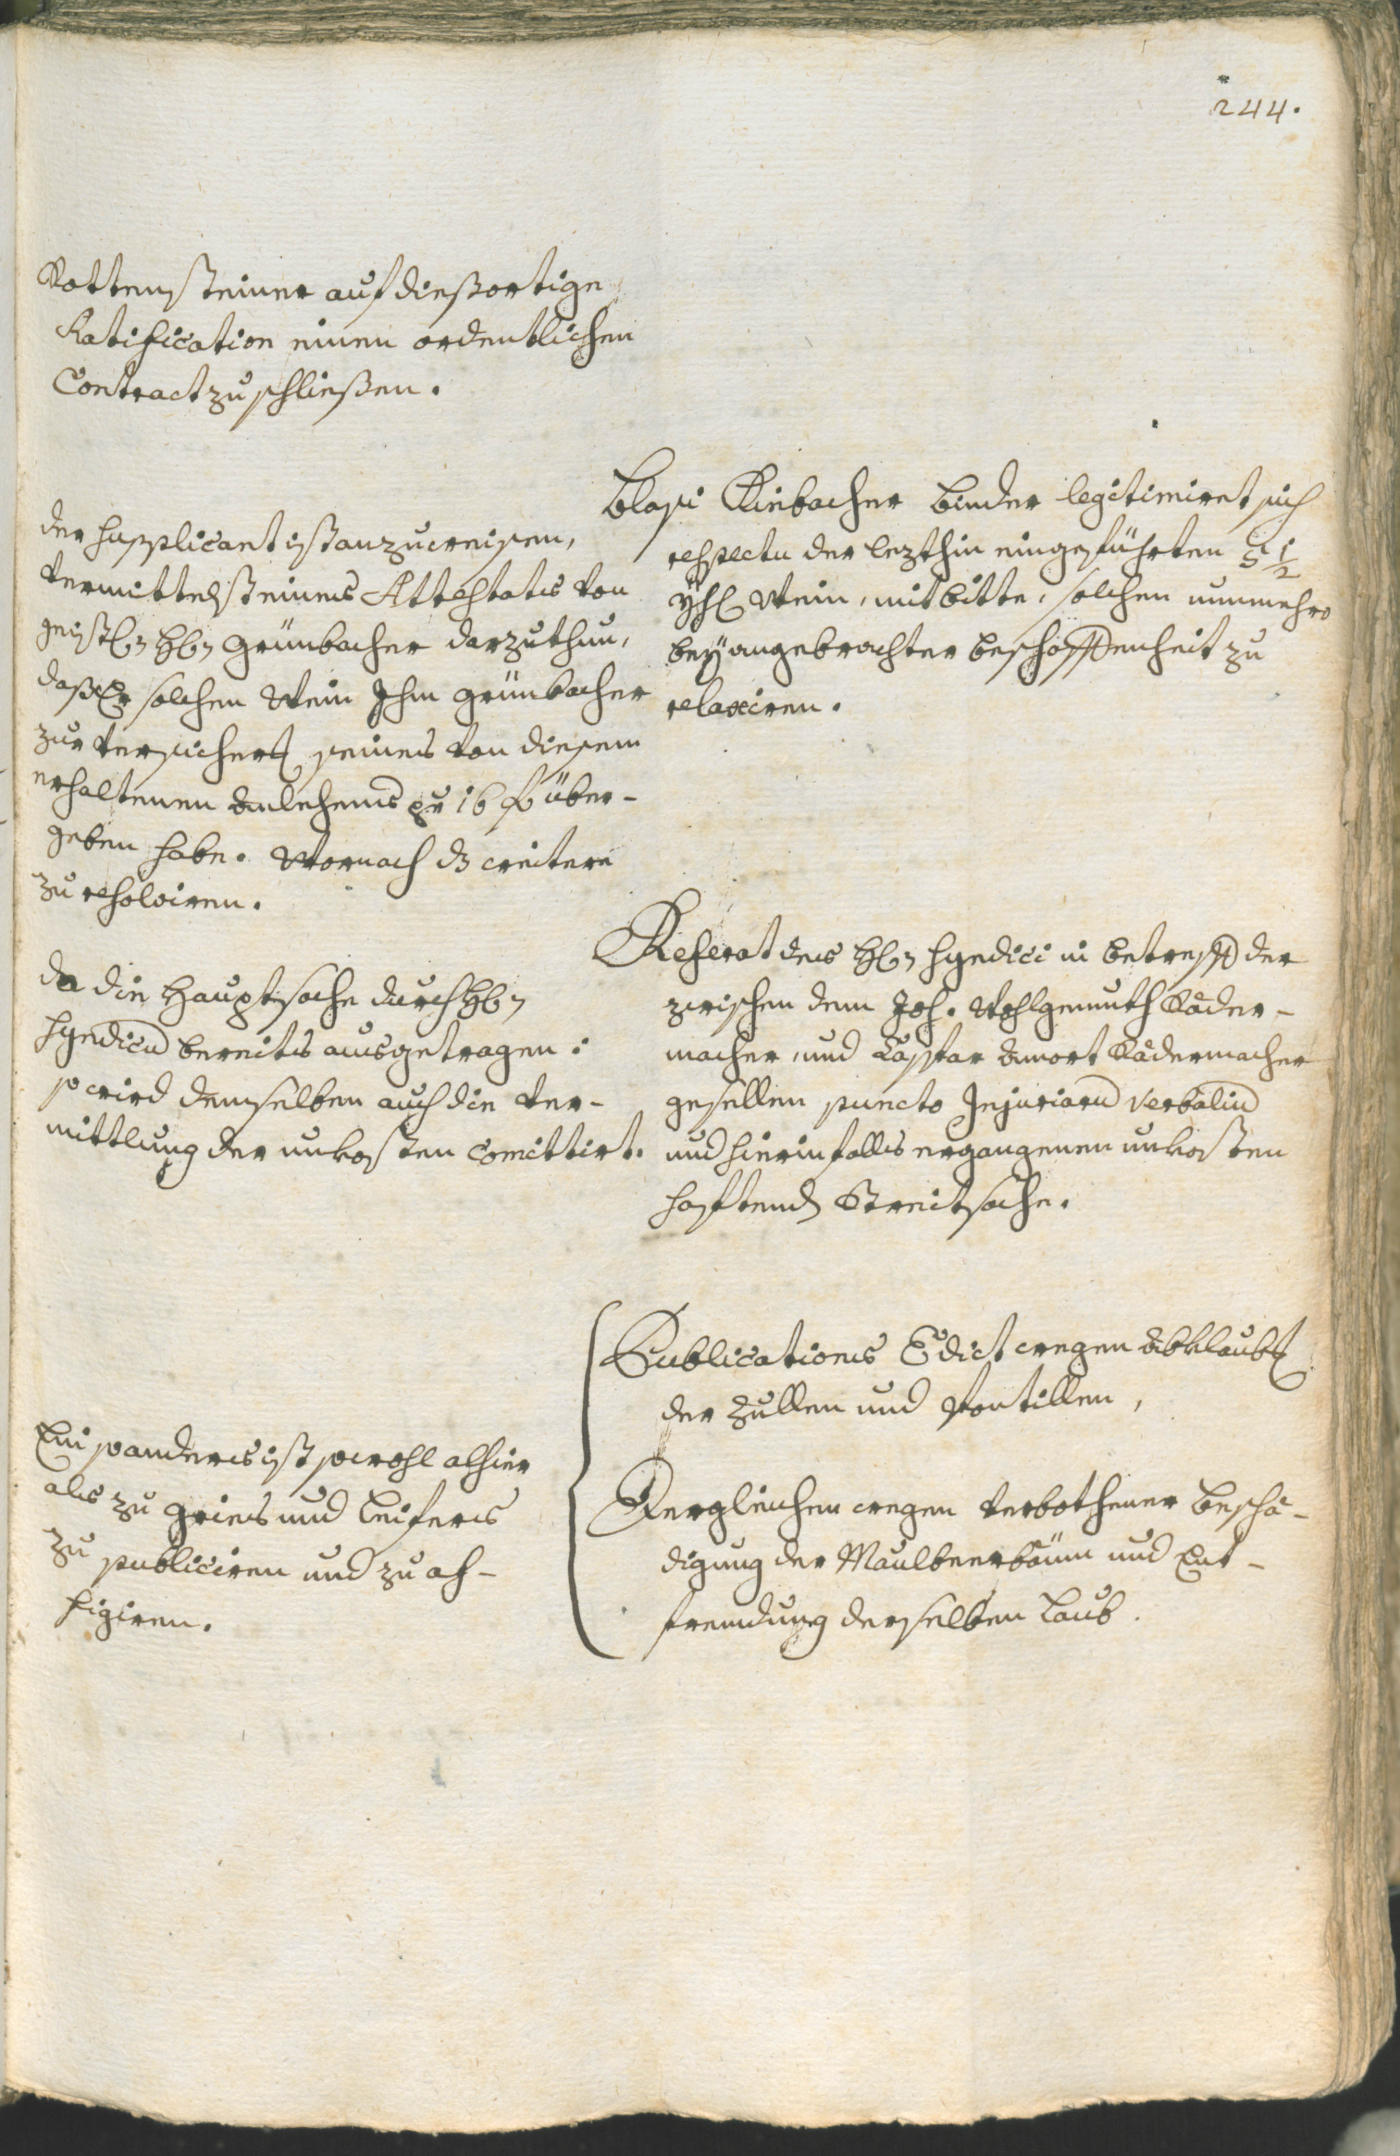 244.
Rottensteiner auf dießortige
Ratification einen ordentlichen
Contract zu schließen.
Blasi Rinbacher Binder legitimiret sich
respectu der lezthin eingeführten 5 1/2
Yhrn Wein, mit bitte, solchen nunmehro
bey angebrachter beschaffenheit zu
relaxiren.
der Supplicant ist anzuweisen,
vermittelst eines Attestatis von
geistl. Hrn Grünbacher darzuthun,
daß Er solchen Wein Ihm Grünbacher
zur versicherg seines von diesem
erhaltenen Anlehens per 16 f über-
geben habe. Wornach dz weitere
zu resolviren.
Referat des Hrn Syndici in betreff der
zwischen dem Joh. Wohlgemuth Räder-
macher, und Caspar Amort Rädermacher
gesellen puncto Injuriarum verbalium
und hierinfalls ergangenen unkosten
haftend Streitsache.
da die Hauptsache durch Hrn
Syndicum bereits ausgetragen:
so wird demselben auch die Ver-
mittlung der unkosten comittirt.
Publications Edict wegen abklaubg
der Zullen und Pontillen,
Dergleichen wegen verbothener beschä-
digung der Maulbeerbäum und Ent-
fremdung derselben Laub.
Ein so anderes ist sowohl alhier
als zu Gries und Leifers
zu publiciren und zu af-
figiren.